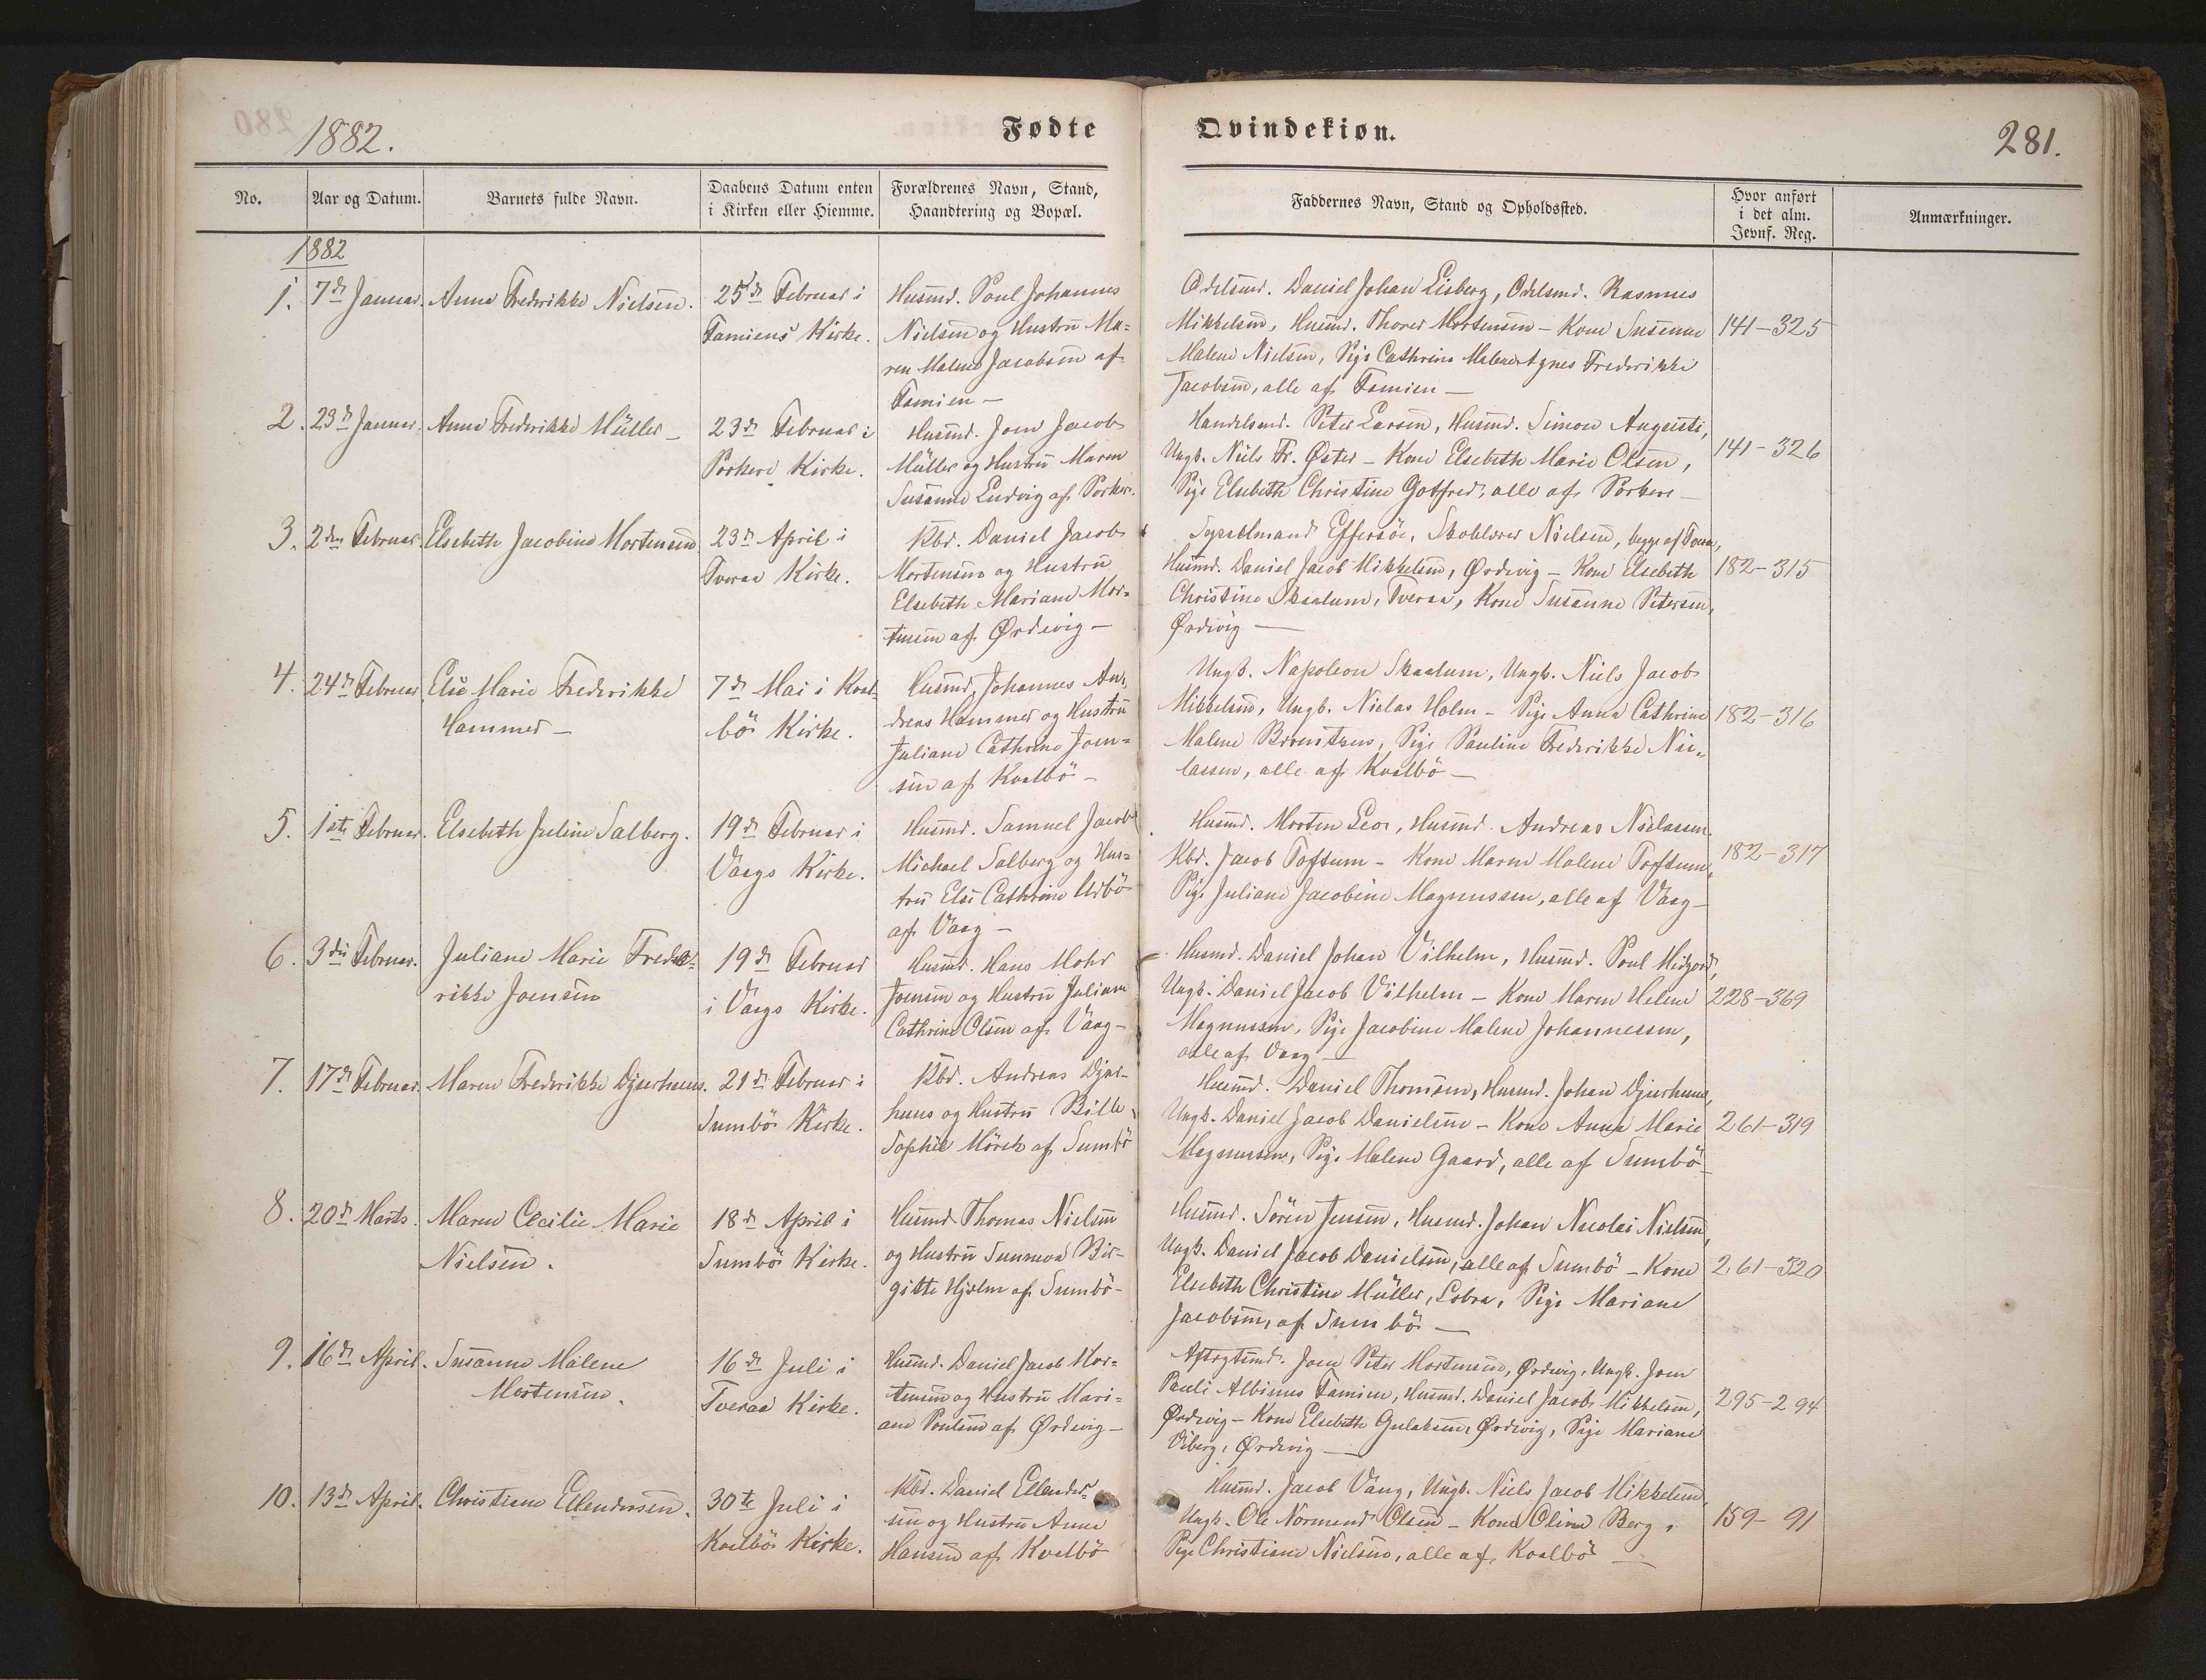 1882.
Fødte
Qvindekiøn.
281.
No.
Aar og Datum.
Barnets fulde Navn.
Daabens Datum enten
i Kirken eller Hiemme.
Forældrenes Navn, Stand,
Haandtering og Bopæl.
Faddernes Navn, Stand og Opholdssted.
Hvor anført
i det alm.
Jevnf. Reg.
Anmærkninger.
1882
1.
7de Januar.
Anna Frederikke Nielsen.
25de Februar i
Famiens Kirke.
Husmd. Poul Johannes
Nielsen og Hustru Ma-
ren Malene Jacobsen af
Famien —
Odelsmd. Daniel Johan Lisberg, Odelsmd. Rasmus
Mikkelsen, Husmd. Thorer Mortensen - Kone Susanne
Malene Nielsen, Pige Cathrine Malene Agnes Frederikke
Jacobsen, alle af Famien —
141-325
2.
23de Januar.
Anna Frederikke Müller —
23de Februar i
Porkere Kirke.
Husmd. Joen Jacob
Müller og Hustru Maren
Susanne Ludvig af Porkere.
Handelsmd. Peter Larsen, Husmd. Simon Augusti,
Ungk. Niels Fr. Øster - Kone Elsebeth Marie Olsen,
Pige Elsebeth Christine Gotfred, alle af Porkere —
141-326
3.
2den Februar.
Elsebeth Jacobine Mortensen
23de April i
Tveraa Kirke.
Kbd. Daniel Jacob
Mortensen og Hustru
Elsebeth Mariane Mor-
tensen af Ørdevig —
Sysselmand Effersöe, Skolelærer Nielsen, begge af Tveraa,
Husmd. Daniel Jacob Mikkelsen, Ørdevig - Kone Elsebeth
Christine Skaalum, Tveraa, Kone Susanne Petersen,
Ørdevig —
182-315
4.
24de Februar
Else Marie Frederikke
Hammer —
7de Mai i Kval-
bö Kirke.
Husmd. Johannes An-
dreas Hammer og Hustru
Juliane Cathrine Joen-
sen af Kvalbö —
Ungk. Napoleon Skaalum, Ungk. Niels Jacob
Mikkelsen, Ungk. Niclas Holm - Pige Anna Cathrine
Malene, Pige Pauline Frederikke Nic-
lassen, alle af Kvalbö —
182-316
5.
1ste Februar.
Elsebeth Juline Salberg.
19de Februar i
Vaags Kirke.
Husmd. Samuel Jacob
Michael Salberg og Hus-
tru Else Cathrine
af Vaag —
Husmd. Morten Leo, Husmd. Andreas Niclassen.
Kbd. Jacob Toftum - Kone Maren Malene Toftum,
Pige Juliane Jacobine Magnussen, alle af Vaag —
182-317
6.
3die Februar.
Juliane Marie Frede-
rikke Joensen
19de Februar
i Vaags Kirke.
Husmd. Hans Mohr
Joensen og Hustru Juliane
Cathrine Olsen af Vaag —
Husmd. Daniel Johan Vilhelm, Husmd. Poul Midjord,
Ungk. Daniel Jacob Vilhelm - Kone Maren Helene
Magnussen, Pige Jacobine Malene Johannessen,
alle af Vaag —
228-369
7.
17de Februar.
Maren Frederikke Djurhuus.
21de Februar i
Sumbö Kirke.
Kbd. Andreas Djur-
huus og Hustru Bille
Sophie Mörch af Sumbö
Husmd. Daniel Thomsen, Husmd. Johan Djurhuus,
Ungk. Daniel Jacob Danielsen - Kone Anna Marie
Magnussen, Pige Malene Gaard, alle af Sumbö —
261-319
8.
20de Marts.
Maren Cecilie Marie
Nielsen.
18de April i
Sumbö Kirke.
Husmd. Thomas Nielsen
og Hustru Sunneva Bir-
gitte Hjelm af Sumbö -
Husmd. Sören Jensen, Husmd. Johan Nicolai Nielsen,
Ungk. Daniel Jacob Danielsen, alle af Sumbö - Kone
Elsebeth Christine Müller, Lobra, Pige Mariane
Jacobsen, af Sumbö —
261-320
9.
16de April.
Susanne Malene
Mortensen.
16de Juli i
Tveraa Kirke.
Husmd. Daniel Jacob Mor-
tensen og Hustru Mari-
ane Poulsen af Ørdevig —
Aftægtsmd. Joen Peter Mortensen, Ørdevig, Ungk. Joen
Pauli Albinus Famien, Husmd. Daniel Jacob Mikkelsen,
Ørdevig - Kone Elsebeth Gulaksen, Ørdevig, Pige Mariane
Viberg, Ørdevig —
295-294
10.
13de April.
Christiane Ellendersen.
30te Juli i
Kvalbö Kirke.
Kbd. Daniel Ellender-
sen og Hustru Anna
Hansen af Kvalbö
Husmd. Jacob Vang, Ungk. Niels Jacob Mikkelsen,
Ungk. Ole Normend Olsen - Kone Oline Berg,
Pige Christiane Nielsen, alle af Kvalbö —
159-91